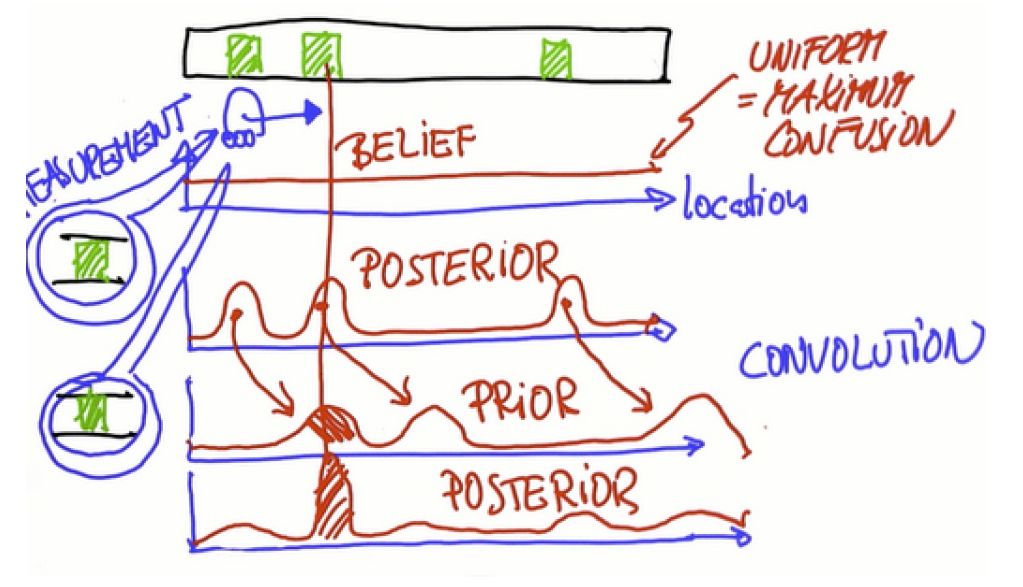 UNIFORM
= MAXIMUM
CONFUSION
EASUREMENT
BELIEF
location
POSTERIOR
CONVOLUTION
PRIOR
POSTERIOR